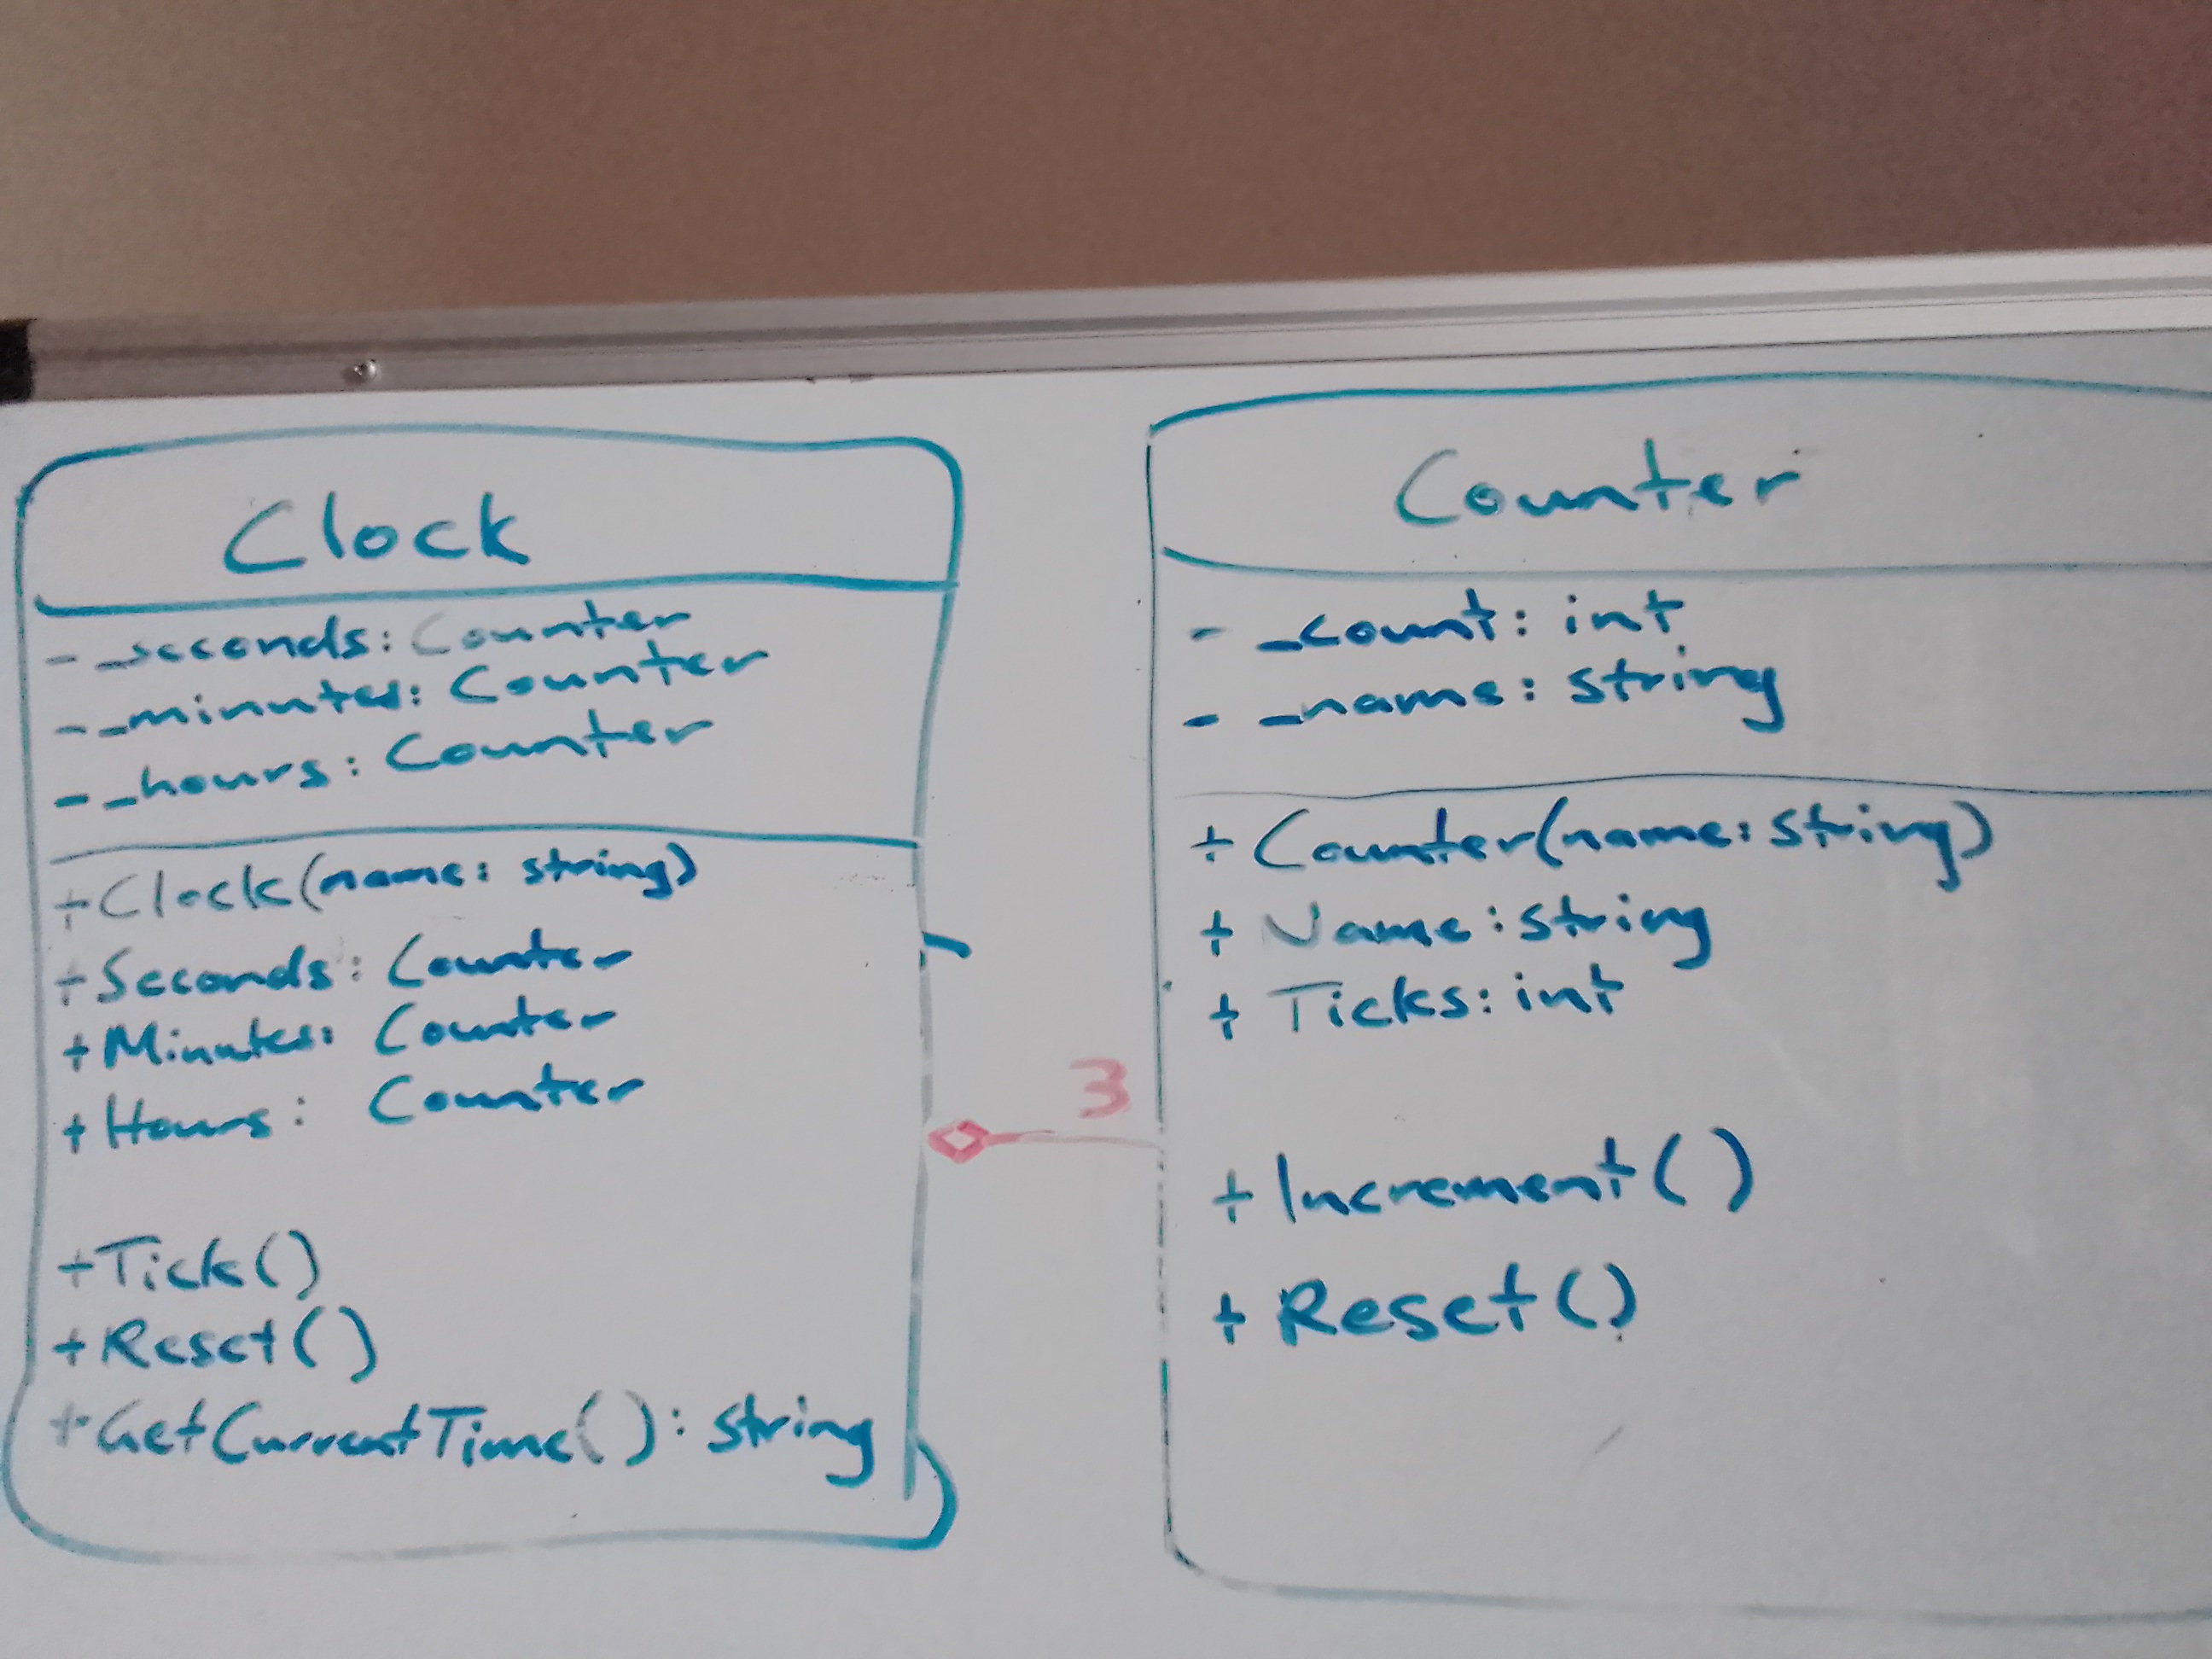 Clock
- _seconds: Counter
- _minutes: Counter
- _hours: Counter
+Clock(name: string)
+Seconds: Counter
+Minutes: Counter
+Hours: Counter
+Tick()
+Reset()
+GetCurrentTime(): string
3
Counter
- _count: int
- _name: string
+ Counter(name: string)
+ Name: string
+ Ticks: int
+ Increment()
+ Reset()